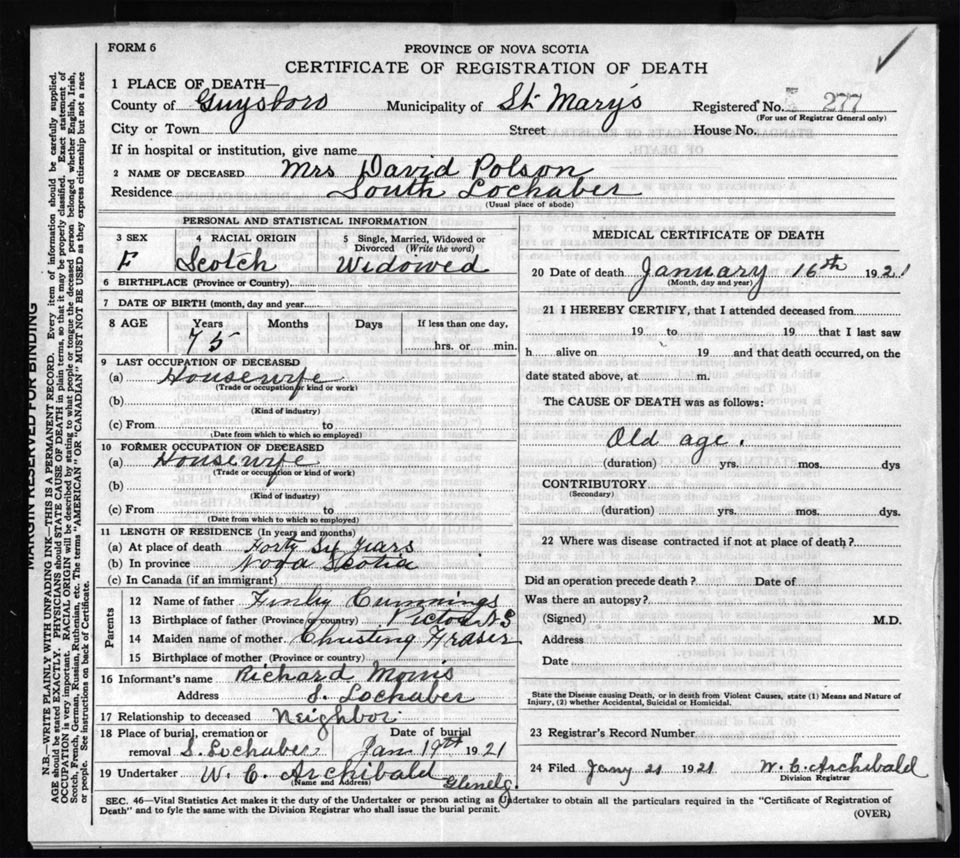 FORM 6
PROVINCE OF NOVA SCOTIA
CERTIFICATE OF REGISTRATION OF DEATH
1 PLACE OF DEATH—
County of Guysboro Municipality of St Mary's Registered No. 277
(For use of Registrar General only)
City or Town Street House No.
If in hospital or institution, give name
2 NAME OF DECEASED Mrs David Polson
Residence South Lochaber
(Usual place of abode)
PERSONAL AND STATISTICAL INFORMATION
3 SEX 4 RACIAL ORIGIN 5 Single, Married, Widowed or Divorced (Write the word)
F Scotch Widowed
6 BIRTHPLACE (Province or Country)
7 DATE OF BIRTH (month, day and year)
8 AGE Years Months Days If less than one day,
75 hrs. or min.
9 LAST OCCUPATION OF DECEASED
(a) Housewife
(Trade or occupation or kind or work)
(b)
(Kind of industry)
(c) From to
(Date from which to which so employed)
10 FORMER OCCUPATION OF DECEASED
(a) Housewife
(Trade or occupation or kind of work)
(b)
(Kind of industry)
(c) From to
(Date from which to which so employed)
11 LENGTH OF RESIDENCE (In years and months)
(a) At place of death Forty Six Years
(b) In province Nova Scotia
(c) In Canada (if an immigrant)
Parents
12 Name of father Finley Cummings
13 Birthplace of father (Province or country) Pictou N S
14 Maiden name of mother Christing Fraser
15 Birthplace of mother (Province or country)
16 Informant's name Richard Morris
Address S. Lochaber
17 Relationship to deceased Neighbor
18 Place of burial, cremation or Date of burial
removal S. Lochaber Jan 19th 1921
19 Undertaker W. C. Archibald Glenelg
(Name and Address)
MEDICAL CERTIFICATE OF DEATH
20 Date of death January 16th 1921
(Month, day and year)
21 I HEREBY CERTIFY, that I attended deceased from
19 to 19 that I last saw
h alive on 19 and that death occurred, on the
date stated above, at m.
The CAUSE OF DEATH was as follows:
Old age.
(duration) yrs. mos. dys
CONTRIBUTORY
(Secondary)
(duration) yrs. mos. dys.
22 Where was disease contracted if not at place of death?
Did an operation precede death? Date of
Was there an autopsy?
(Signed) M.D.
Address
Date
State the Disease causing Death, or in death from Violent Causes, state (1) Means and Nature of
Injury, (2) whether Accidental, Suicidal or Homicidal.
23 Registrar's Record Number
24 Filed Jany 21 1921 W. C. Archibald
Division Registrar
SEC. 46—Vital Statistics Act makes it the duty of the Undertaker or person acting as Undertaker to obtain all the particulars required in the "Certificate of Registration of
Death" and to fyle the same with the Division Registrar who shall issue the burial permit.
(OVER)
MARGIN RESERVED FOR BINDING
N.B.—WRITE PLAINLY WITH UNFADING INK—THIS IS A PERMANENT RECORD. Every item of information should be carefully supplied.
AGE should be stated EXACTLY. PHYSICIANS should STATE CAUSE OF DEATH in plain terms, so that it may be properly classified. Exact statement of
OCCUPATION is very important. RACIAL ORIGIN will be described by stating to what people or tongue the deceased person belonged whether English, Irish,
Scotch, French, German, Russian, Ruthenian, etc. The terms "AMERICAN" OR "CANADIAN" MUST NOT BE USED as they express citizenship but not a race
or people. See instructions on back of Certificate.